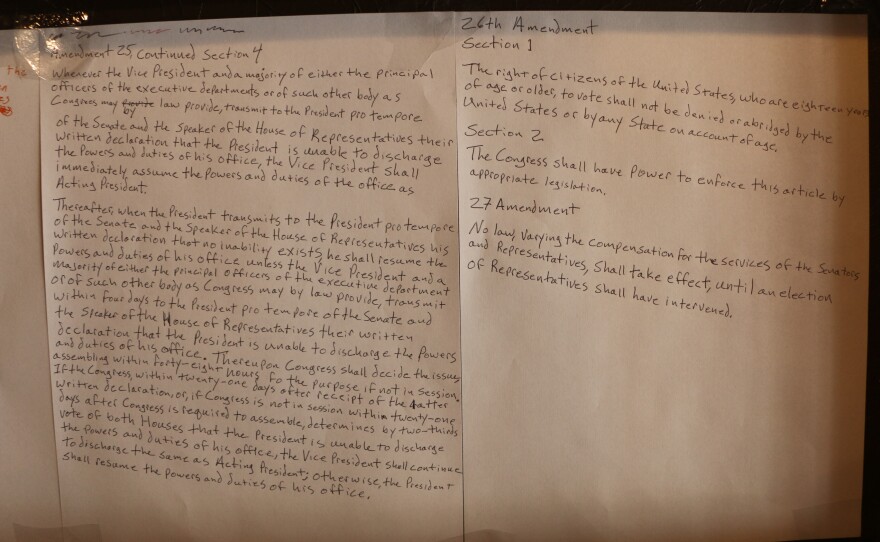 the
Amendment 25, Continued Section 4
Whenever the Vice President and a majority of either the principal
officers of the executive departments or of such other body as
Congress may by law provide, transmit to the President pro tempore
of the Senate and the Speaker of the House of Representatives their
written declaration that the President is unable to discharge
the powers and duties of his office, the Vice President shall
immediately assume the powers and duties of the office as
Acting President.
Thereafter, when the President transmits to the President pro tempore
of the Senate and the Speaker of the House of Representatives his
written declaration that no inability exists, he shall resume the
Powers and duties of his office unless the Vice President and a
majority of either the principal officers of the executive department
or of such other body as Congress may by law provide, transmit
within four days to the President pro tempore of the Senate and
the Speaker of the House of Representatives their written
declaration that the President is unable to discharge the powers
and duties of his office. Thereupon Congress shall decide the issue,
assembling within forty-eight hours fo the purpose if not in session.
If the Congress, within twenty-one days after receipt of the latter
written declaration, or, if Congress is not in session within twenty-one
days after Congress is required to assemble, determines by two-thirds
vote of both Houses that the President is unable to discharge
the powers and duties of his office, the Vice President shall continue
to discharge the same as Acting President; otherwise, the President
shall resume the powers and duties of his office.
26th Amendment
Section 1
The right of citizens of the United States, who are eighteen years
of age or older, to vote shall not be denied or abridged by the
United States or by any State on account of age.
Section 2
The Congress shall have power to enforce this article by
appropriate legislation.
27 Amendment
No law, varying the compensation for the services of the Senators
and Representatives, shall take effect, until an election
of Representatives shall have intervened.